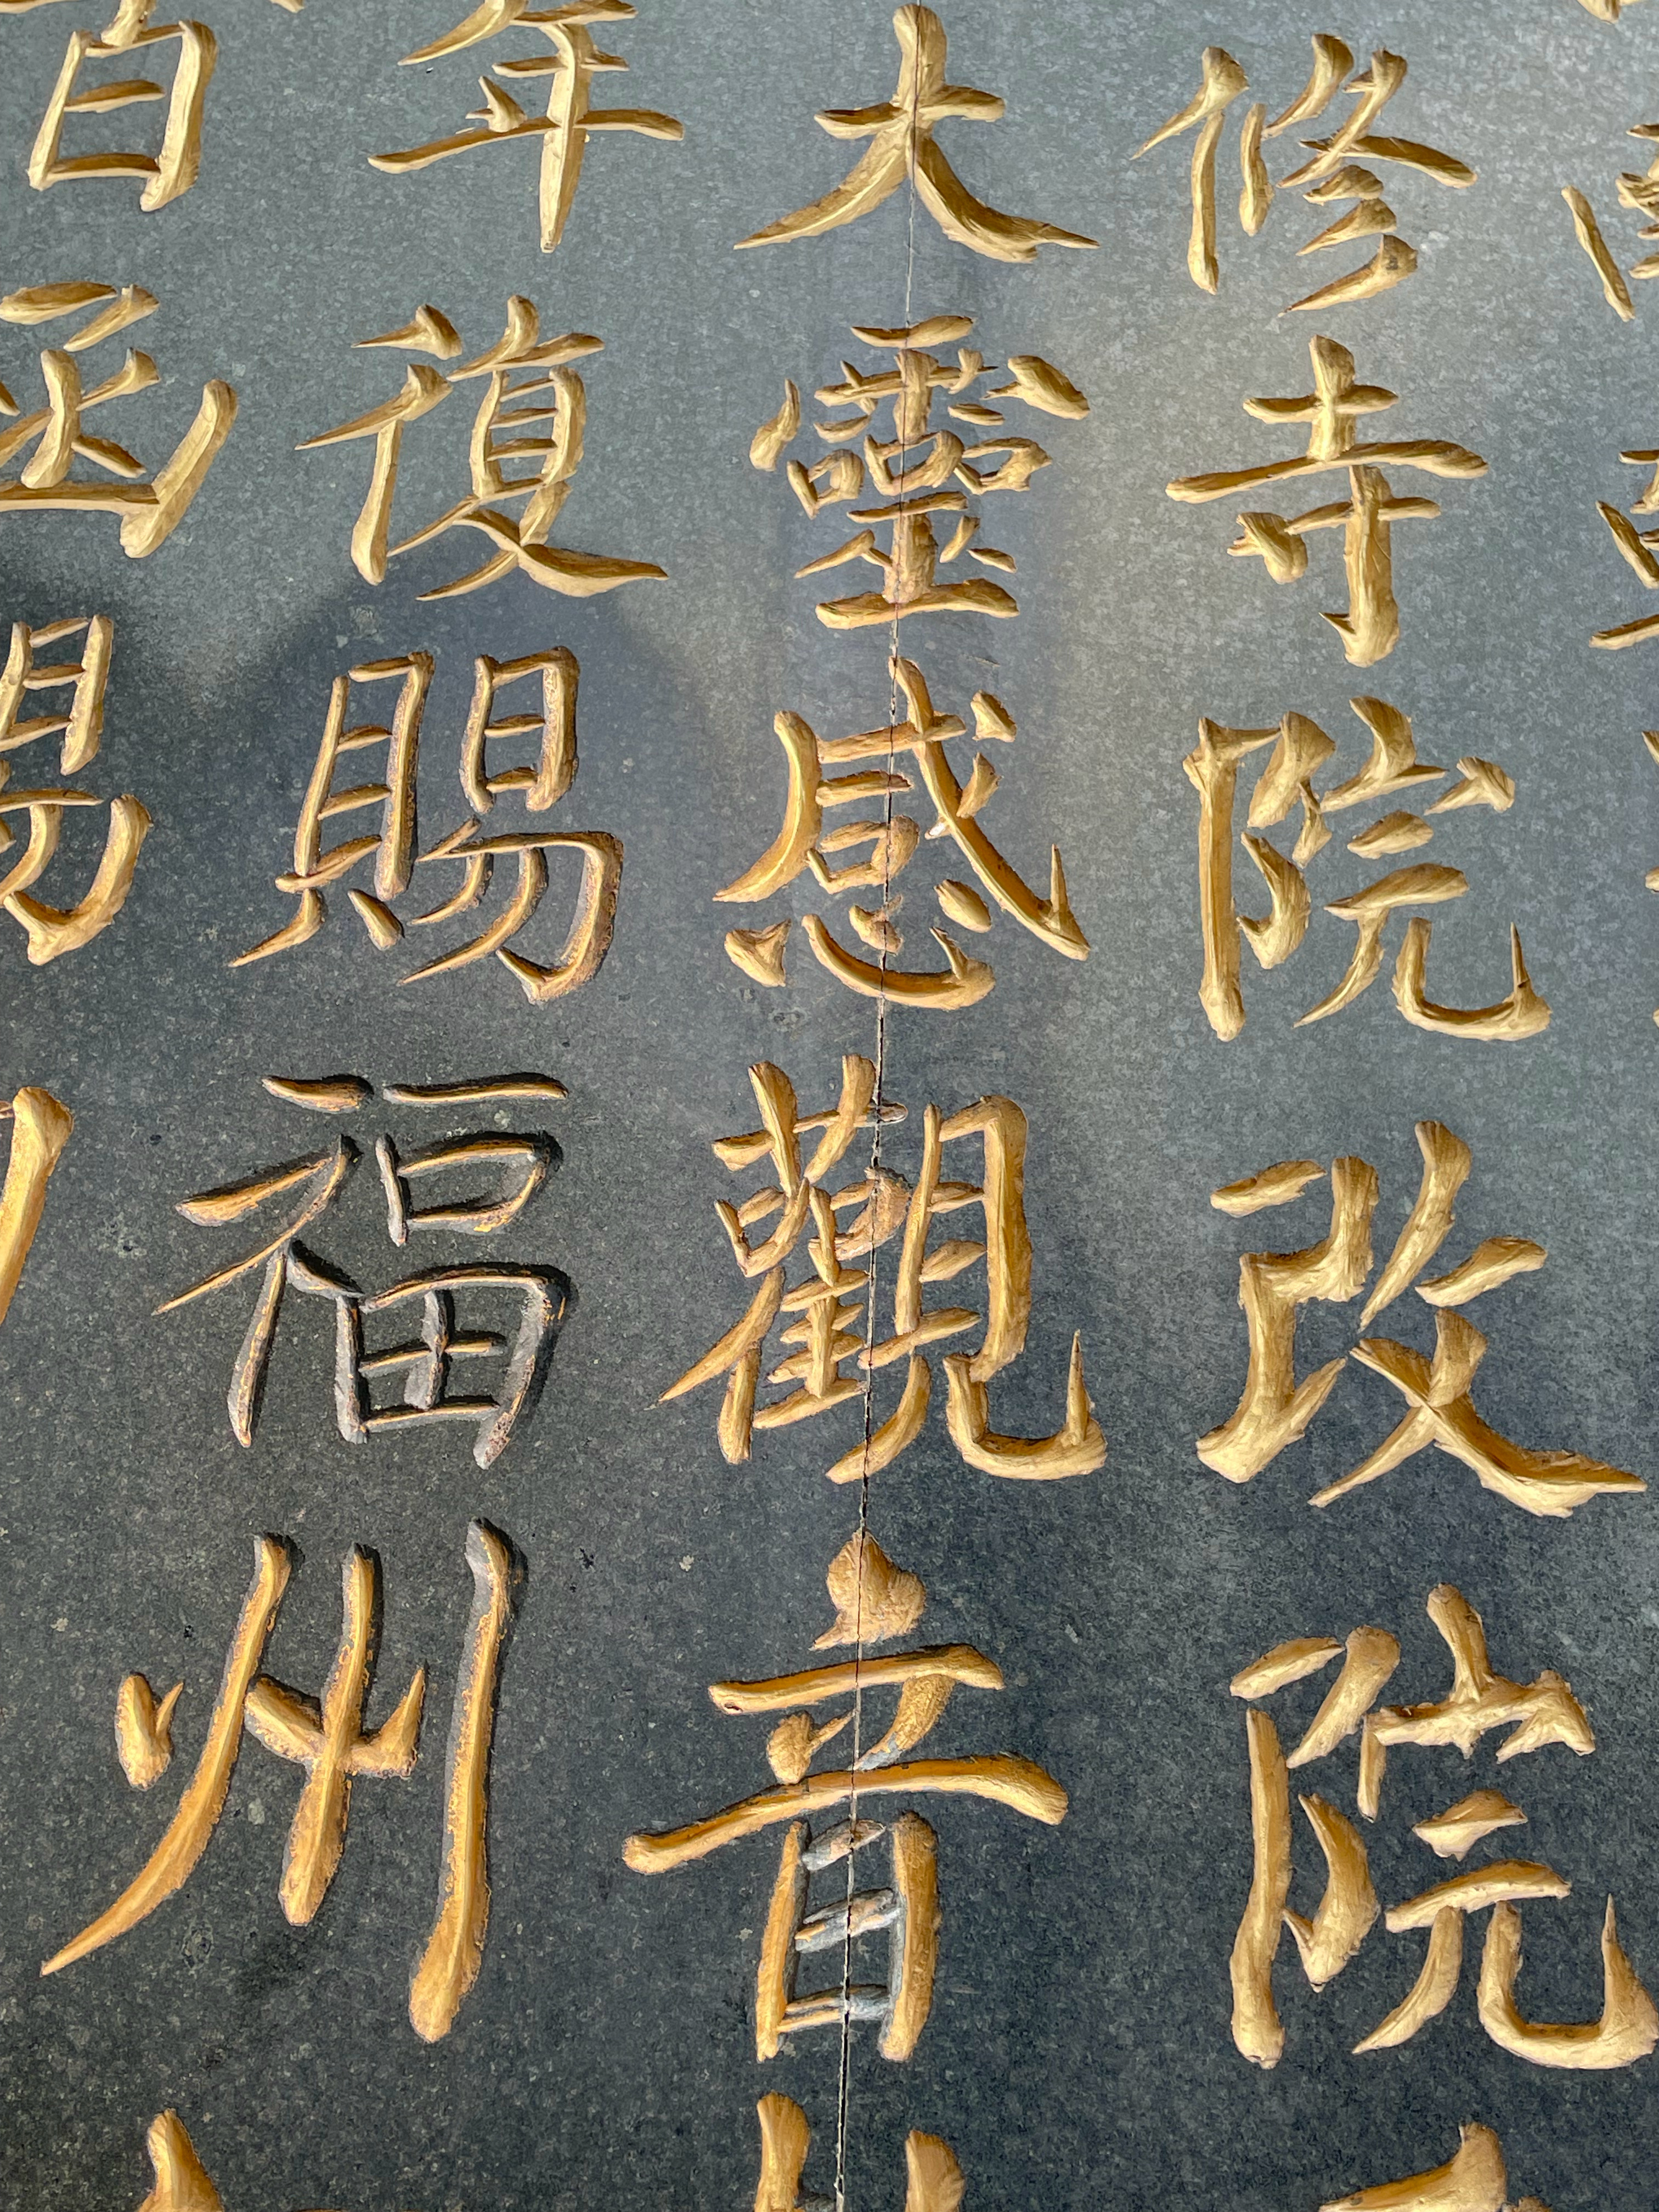 修寺院改院
大靈感觀音
年復賜福州
百函賜